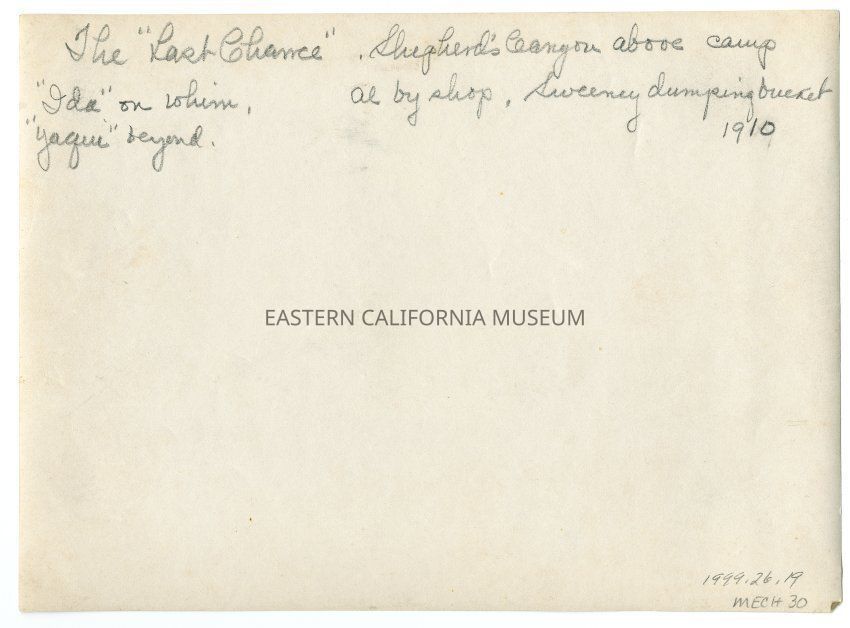 The "Last Chance". Shepherd's Canyon above camp
"Ida" on whim, Al by shop, Sweeney dumping bucket
"Yaqui" beyond. 1910
EASTERN CALIFORNIA MUSEUM
1999.26.19
MECH 30